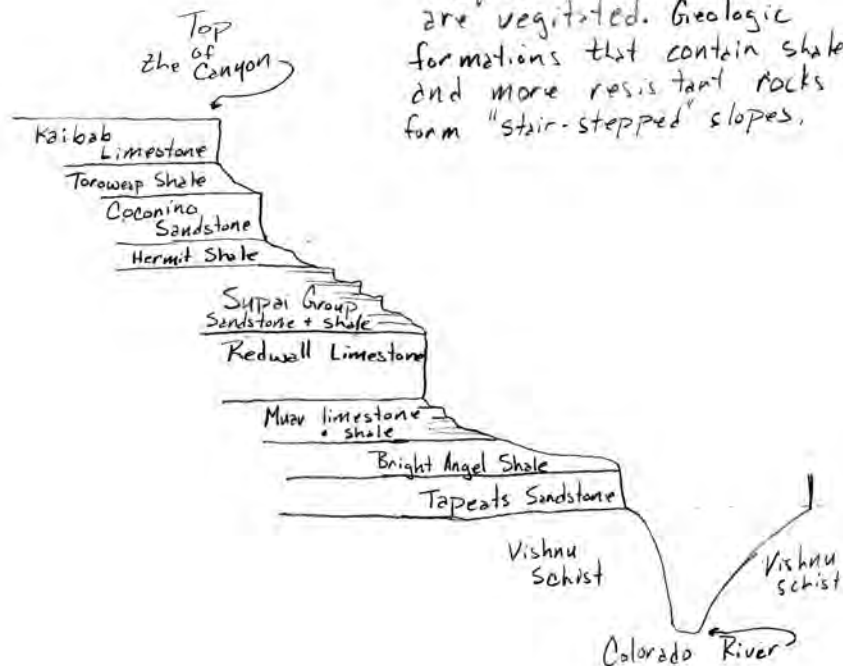 are" vegitated. Geologic
formations that contain shale
and more resistant rocks
form "stair-stepped" slopes.
Top
of
the Canyon
Kaibab
Limestone
Toroweap Shale
Coconino
Sandstone
Hermit Shale
Supai Group
Sandstone + shale
Redwall Limestone
Muav limestone
+ shale
Bright Angel Shale
Tapeats Sandstone
Vishnu
Schist
Vishnu
Schist
Colorado River